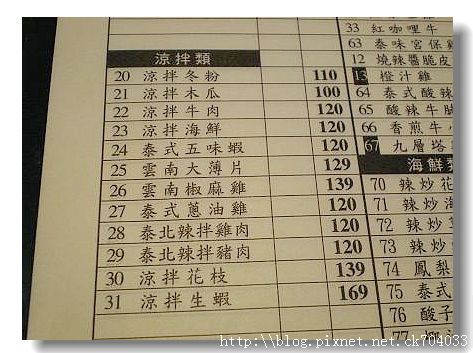 涼拌類
20 涼拌冬粉 110
21 涼拌木瓜 100
22 涼拌牛肉 120
23 涼拌海鮮 120
24 泰式五味蝦 120
25 雲南大薄片 129
26 雲南椒麻雞 139
27 泰式蔥油雞 120
28 泰北辣拌雞肉 120
29 泰北辣拌豬肉 120
30 涼拌花枝 139
31 涼拌生蝦 169
33 紅咖哩牛
63 泰味宮保
12 燒辣醬脆皮
13 橙汁雞
64 泰式酸辣
65 酸辣牛
66 香煎牛
67 九層塔
海鮮
70 辣炒花
71 辣炒
72 辣炒
73 辣炒
74 鳳梨
75 泰式
76 酸子
77
http://blog.pixnet.net.ck704033